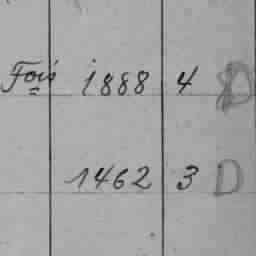 Fois 1888 4 D
1462 3 D